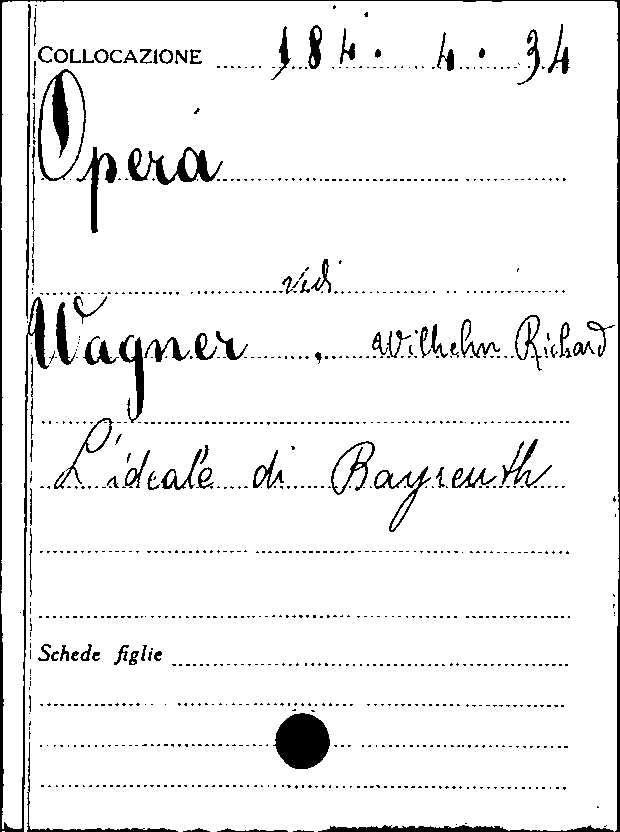 COLLOCAZIONE 184. 4. 34
Opera
vedi
Wagner . Wilhelm Richard
L'ideale di Bayreuth
Schede figlie